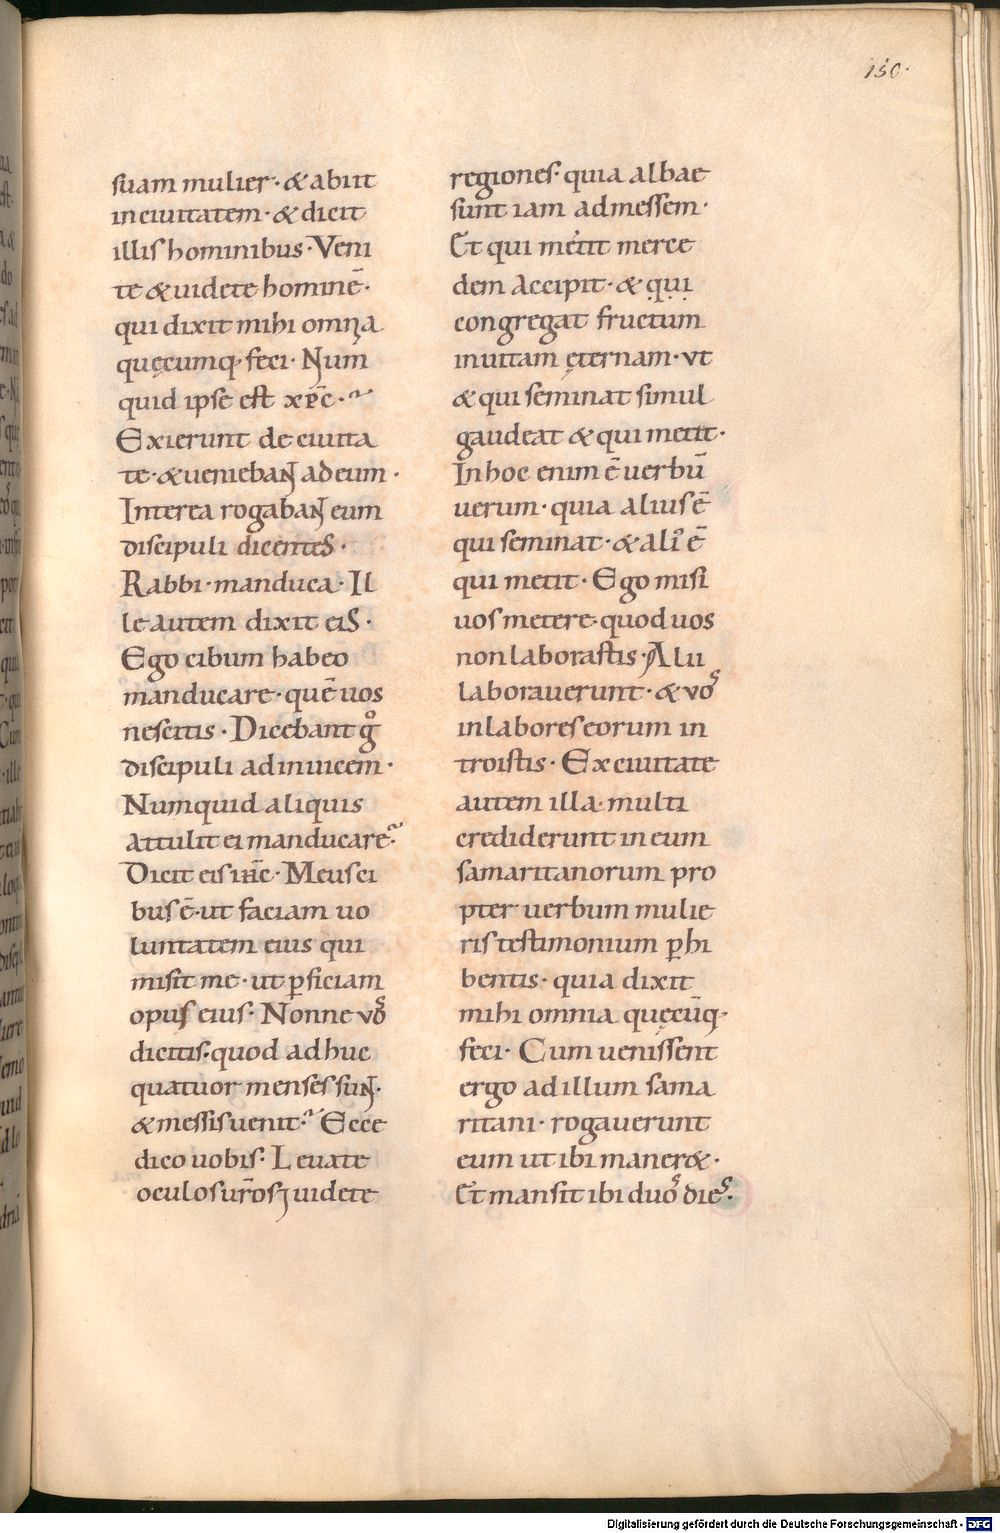 130·
suam mulier· & abiit
in ciuitatem· & dicit
illis hominibus· Veni
te & uidete hominē·
qui dixit mihi omnia
quęcumq· feci· Num
quid ipse est xp̄c·
Exierunt de ciuita
te· & ueniebant ad eum·
Interea rogabant eum
discipuli dicentes·
Rabbi· manduca· Il
le autem dixit eis·
Ego cibum habeo
manducare· quē uos
nescitis· Dicebant g̊
discipuli adinuicem·
Numquid aliquis
attulit ei manducare?
Dicit eis ih̄c· Meus ci
bus ē· ut faciam uo
luntatem eius qui
misit me· ut ꝑficiam
opus eius· Nonne vos
dicitis· quod adhuc
quatuor menses sunt·
& messis uenit? Ecce
dico uobis· Leuate
oculos ur̄os ⁊ uidete
regiones· quia albae
sunt iam ad messem·
Et qui metit merce
dem accipit· & qui
congregat fructum
in uitam ęternam· vt
& qui seminat simul
gaudeat & qui metit·
In hoc enim ē uerbū
uerum· quia alius ē
qui seminat· & aliꝰ ē
qui metit· Ego misi
uos metere· quod uos
non laborastis· Alii
laborauerunt· & vos
in labores eorum in
troistis· Ex ciuitate
autem illa· multi
crediderunt in eum
samaritanorum pro
pter uerbum mulie
ris testimonium ꝑhi
bentis· quia dixit
mihi omnia quęcūq·
feci· Cum uenissent
ergo ad illum sama
ritani· rogauerunt
eum ut ibi maner&·
Et mansit ibi duos dies·
Digitalisierung gefördert durch die Deutsche Forschungsgemeinschaft - DFG